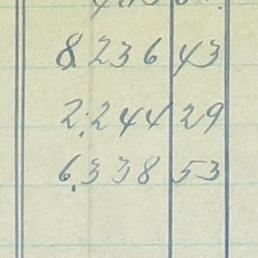 8.236 43
2.244 29
6.338 53